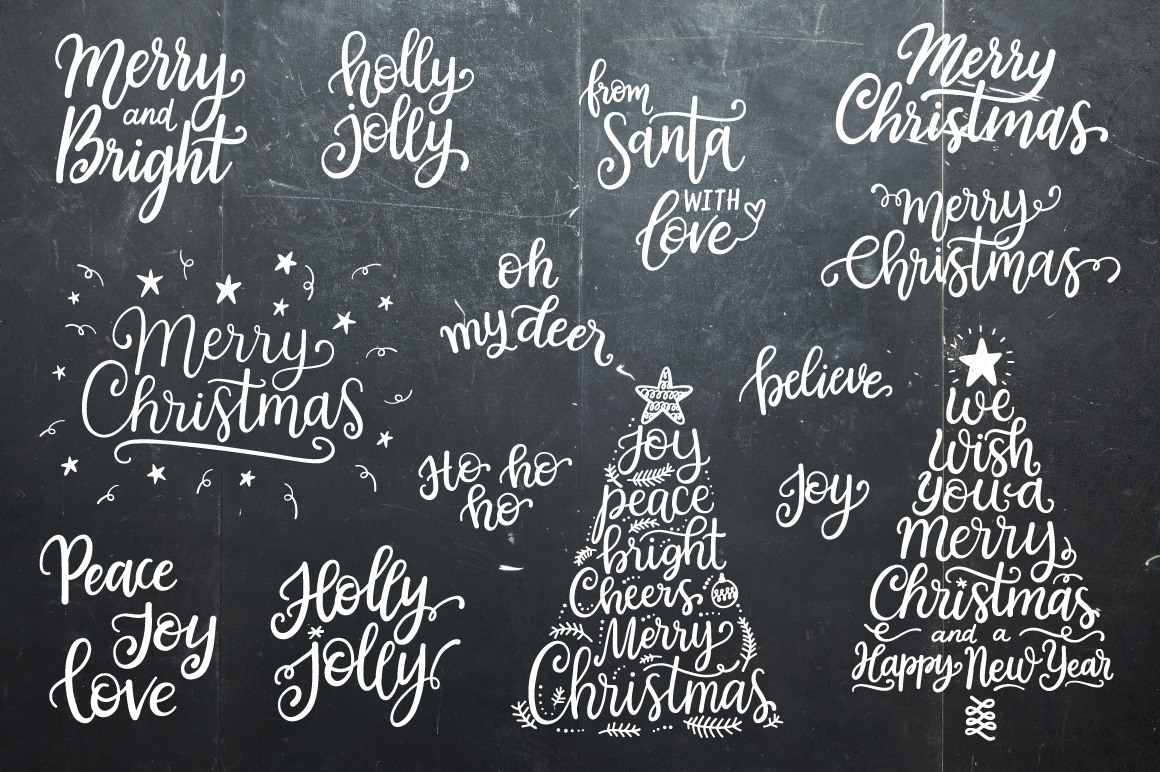 Merry
and
Bright
holly
jolly
from
Santa
WITH
love
Merry
Christmas
Merry
Christmas
oh
my deer
Merry
Christmas
believe
Ho ho
ho
Joy
Peace
Joy
love
Holly
jolly
joy
peace
bright
Cheers
Merry
Christmas
we
wish
you a
Merry
Christmas
and a
Happy New Year